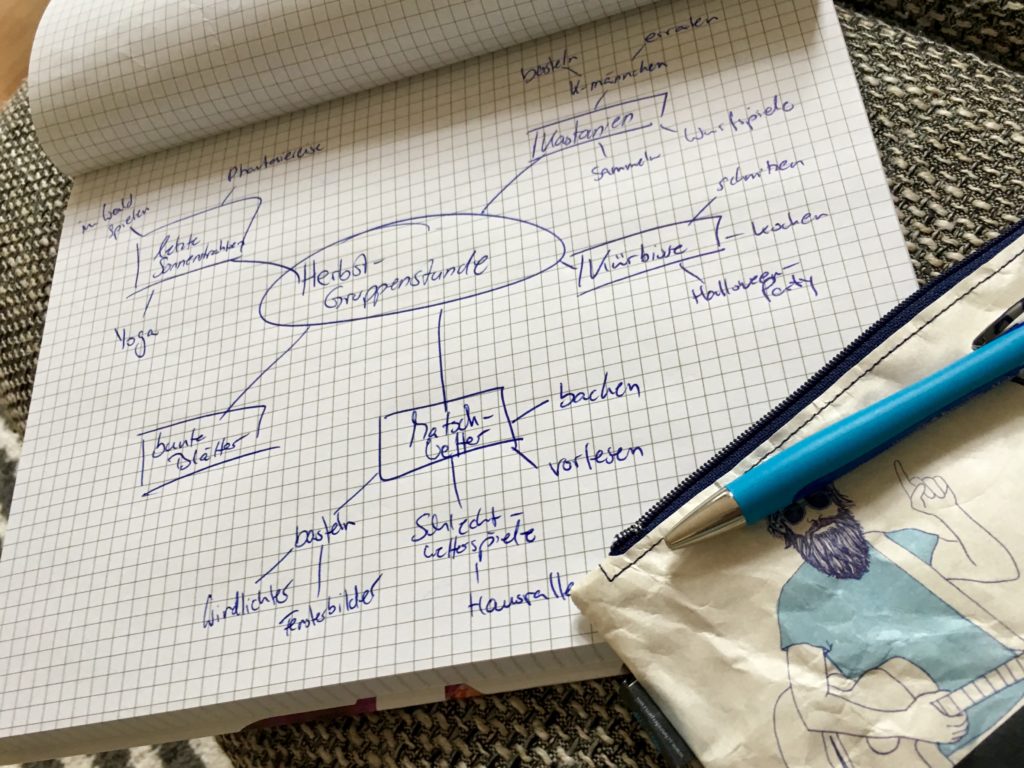 erraten
basteln
K-männchen
Kastanien
Wurfspiele
Sammeln
Phantasiereise
im Wald
spielen
letzte
Sonnenstrahlen
Yoga
Herbst-
Gruppenstunde
schnitzen
Kürbisse
- kochen
Halloween-
party
bunte
Blätter
Matsch-
wetter
backen
vorlesen
basteln
Windlichter
Fensterbilder
Schlecht-
wetterspiele
Hausralle